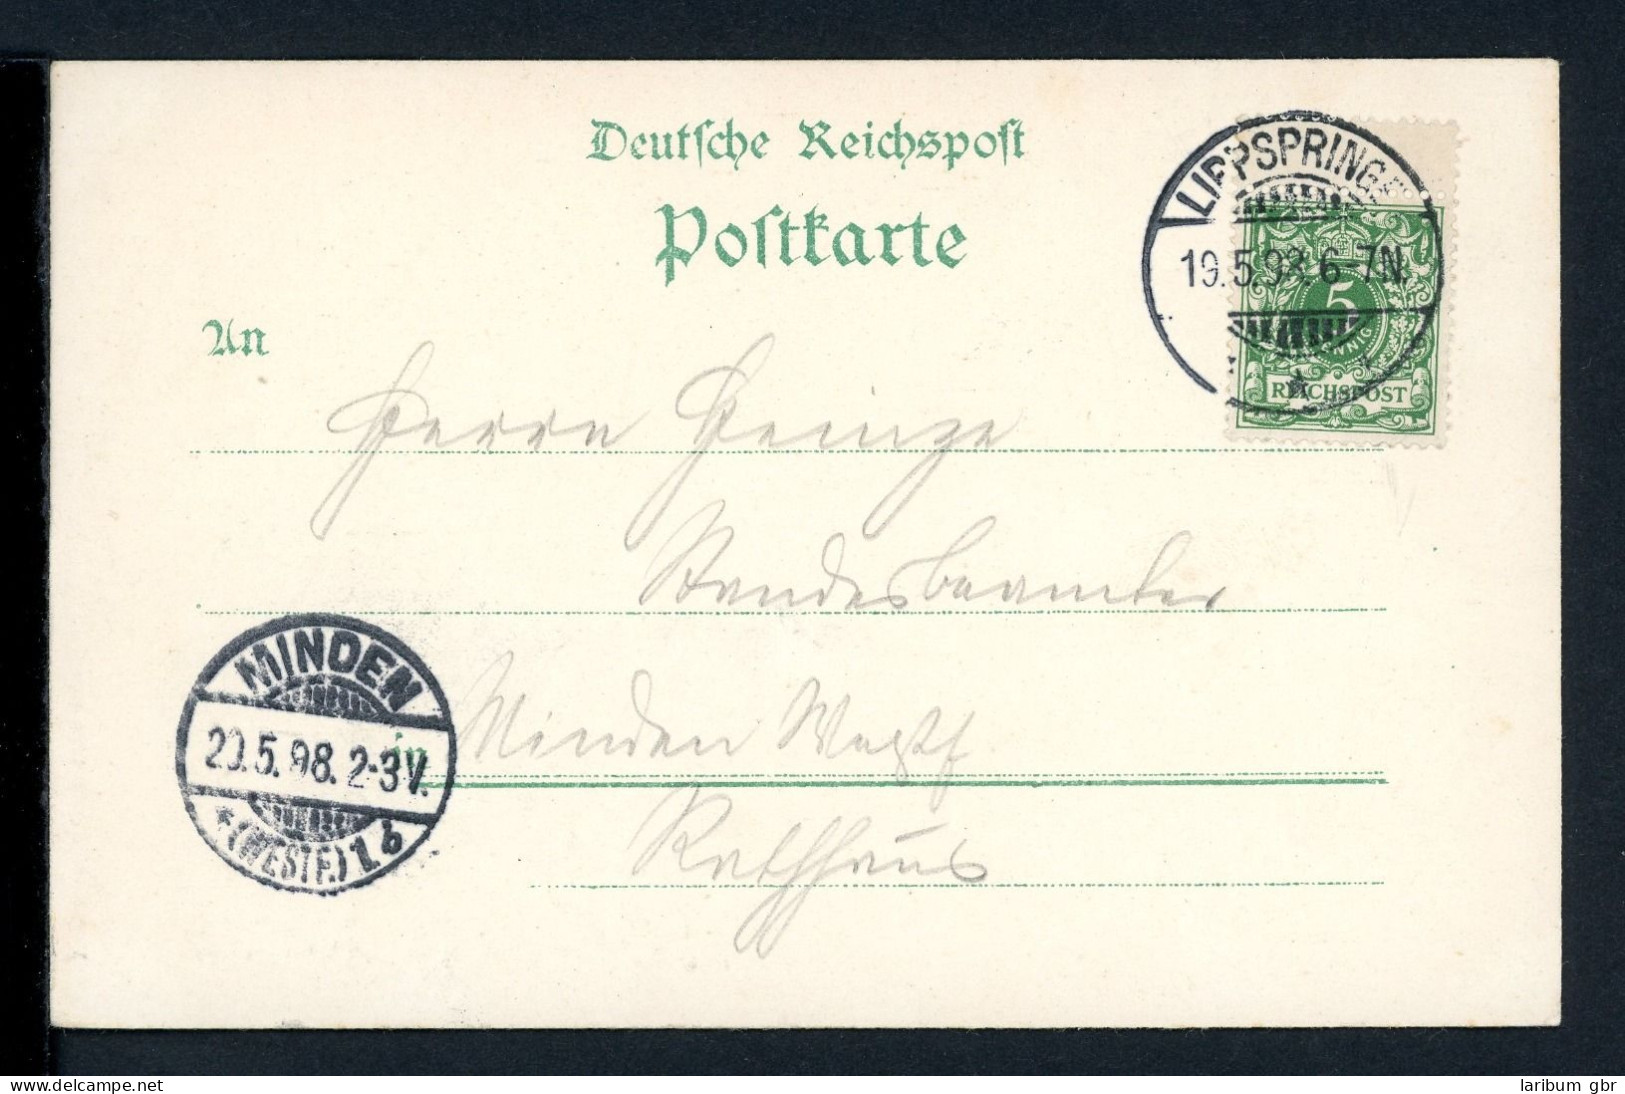 Deutsche Reichspost
Postkarte
LIPPSPRINGE
19.5.98.6-7N.
5
PFENNIG
REICHSPOST
An
Herrn Heinze
Standesbeamter
MINDEN
20.5.98.2-3V.
*(WESTF.)1b
in Minden Westf
Rathhaus
www.delcampe.net
laribum gbr